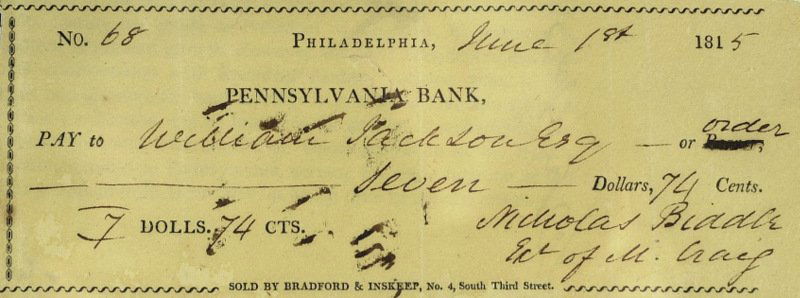 No. 68 Philadelphia, June 1st 1815
PENNSYLVANIA BANK,
PAY to William Jackson Esq — or order
Seven — Dollars, 74 Cents.
7 DOLLS. 74 CTS. Nicholas Biddle
Exr of M. Craig
SOLD BY BRADFORD & INSKEEP, No. 4, South Third Street.